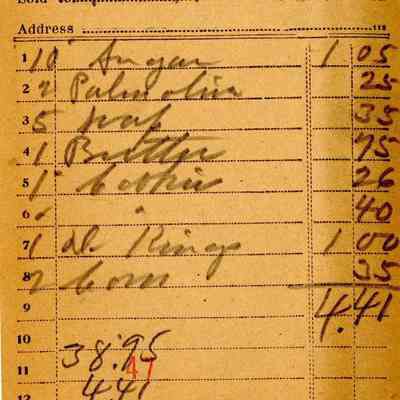 Address
1 10 Sugar 1 05
2 2 Palmolive 25
3 5 soap 35
4 1 Butter 75
5 1 Cookies 26
6 40
7 1 Rings 1 00
8 2 Corn 35
9 4.41
10 38.95
11 47
12 441